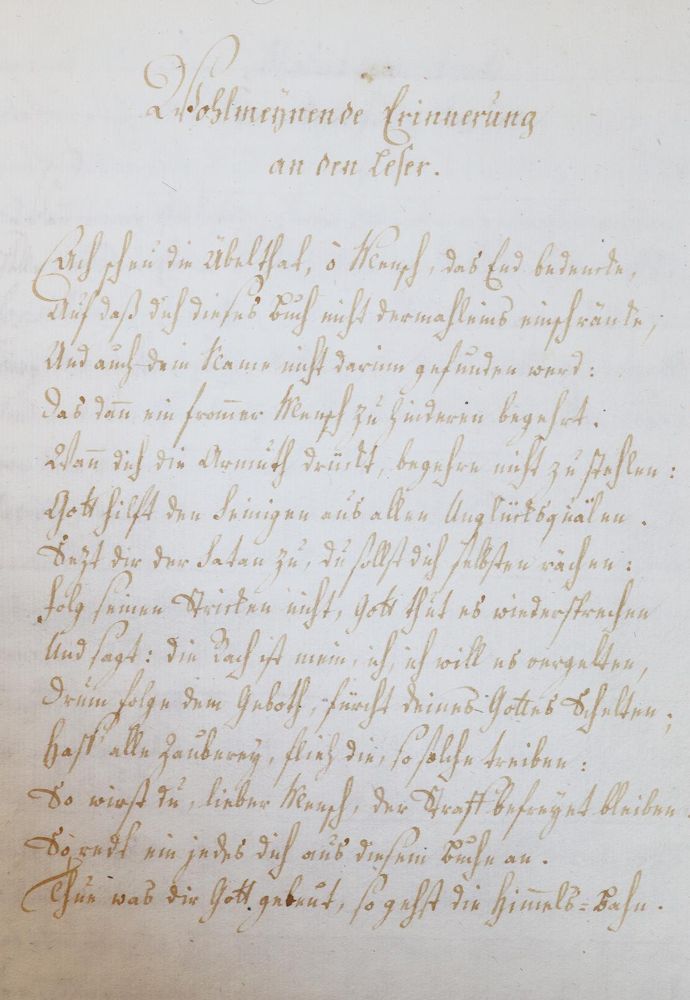 Wohlmeÿnende Erinnerung
an den Leser.
Ach scheu die Übelthat, ô Mensch, das End bedencke,
Auf daß dich dieses Buch nicht dermahleins einschräncke,
Und auch dein Name nicht darinn gefunden werd:
Das dañ ein from̄er Mensch zu hinderen begehrt.
Wañ dich die Armuth drückt, begehre nicht zu stehlen:
Gott hilft den Seinigen aus allen Unglücksquälen.
Sezt dir der Satan zu, du sollst dich selbsten rächen:
Folg seinen Stricken nicht, Gott thut es wiedersprechen
Und sagt: die Rach ist mein, ich, ich will es vergelten,
Drum folge dem Geboth, fürcht deines Gottes Schelten;
Haß alle Zauberey, flieh die, so solche treiben:
So wirst du, lieber Mensch, der Straff befreyet bleiben.
So redt ein jedes dich aus diesem Buche an.
Thue was dir Gott gebeut, so gehst die Him̄els=Bahn.